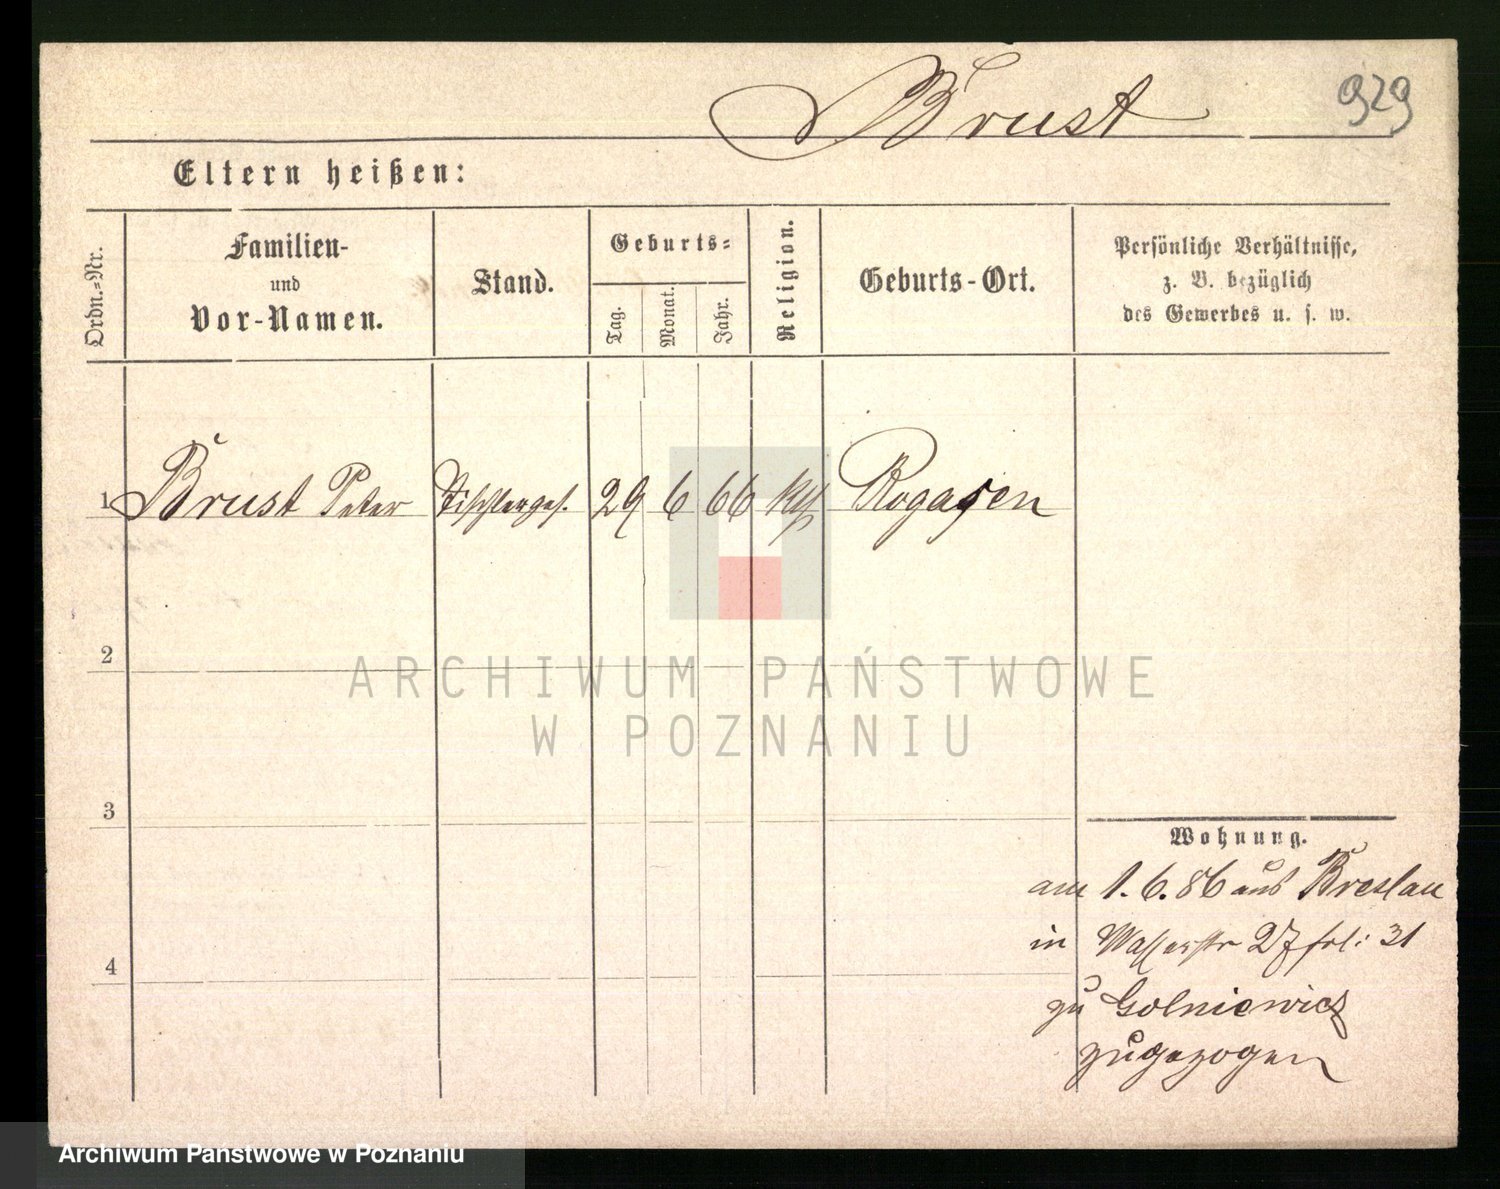 Brust
929
Eltern heißen:
Ordn.=Nr.
Familien-
und
Vor-Namen.
Stand.
Geburts=
Tag.
Monat.
Jahr.
Religion.
Geburts-Ort.
Persönliche Verhältnisse,
z. B. bezüglich
des Gewerbes u. s. w.
1 Brust Peter Tischlerges. 29 6 66 kth Rogasen
2
3
4
Wohnung.
am 1. 6. 86 aus Breslau
in Wasserstr 27 fol: 31
zu Golniewicz
zugezogen
ARCHIWUM PAŃSTWOWE
W POZNANIU
Archiwum Państwowe w Poznaniu